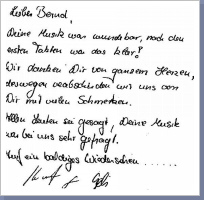 Lieber Bernd,
Deine Musik war wunderbar, nach den
ersten Takten war das klar!
Wir danken Dir von ganzem Herzen,
deswegen verabschieden wir uns von
Dir mit vielen Schmerzen.
Allen Leuten sei gesagt, Deine Musik
war bei uns sehr gefragt.
Auf ein baldiges Wiedersehen ......